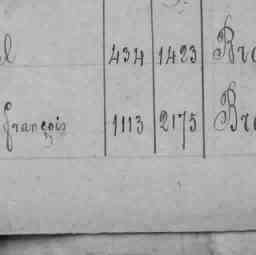 l 434 1423 Bro
françois 1113 2175 Bro